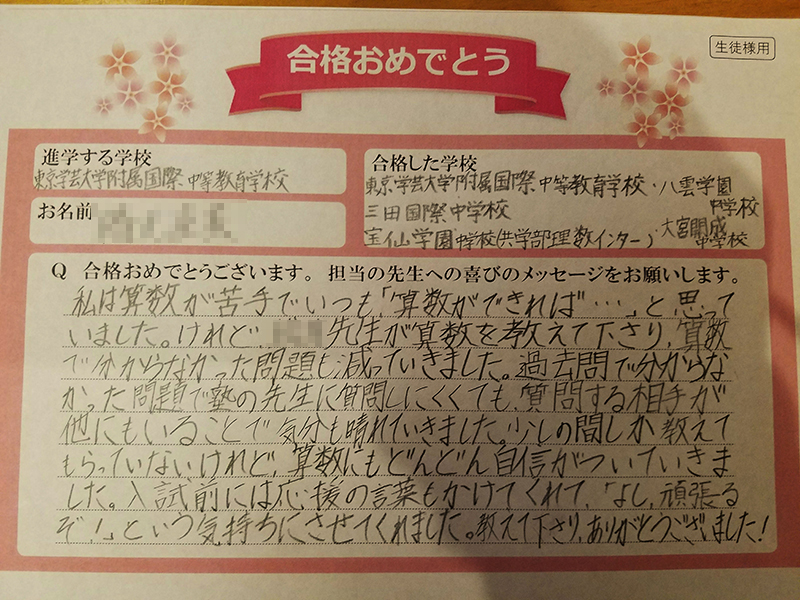 合格おめでとう
生徒様用
進学する学校
東京学芸大学附属国際中等教育学校
お名前
合格した学校
東京学芸大学附属国際中等教育学校・八雲学園
中学校
三田国際中学校
宝仙学園中学校(共学部理数インター)大宮開成
中学校
Q 合格おめでとうございます。担当の先生への喜びのメッセージをお願いします。
私は算数が苦手でいつも「算数ができれば…」と思って
いました。けれど、先生が算数を教えて下さり、算数
で分からなかった問題も減っていきました。過去問で分からな
かった問題で塾の先生に質問しにくくても、質問する相手が
他にもいることで気分も晴れていきました。少しの間しか教えて
もらっていないけれど、算数にもどんどん自信がついていきま
した。入試前には応援の言葉もかけてくれて、「よし、頑張る
ぞ!」という気持ちにさせてくれました。教えて下さり、ありがとうございました!